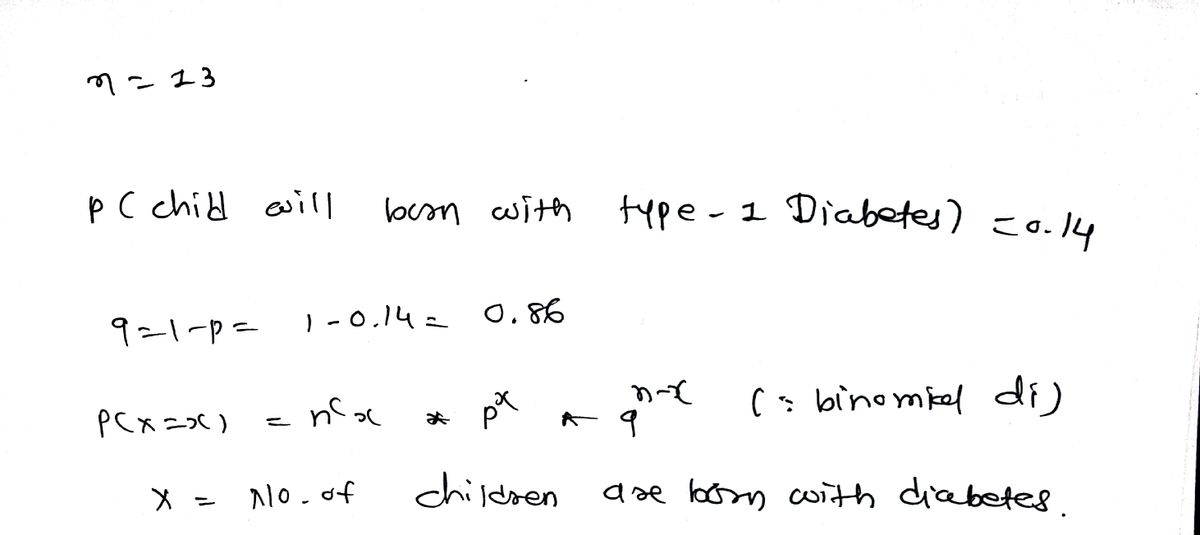 n = 13
P ( child will born with type - 1 Diabetes) = 0.14
q = 1 - p = 1 - 0.14 = 0.86
P(x = x) = nCx * p^x * q^n-x (∵ binomial di)
X = No. of children are born with diabetes.